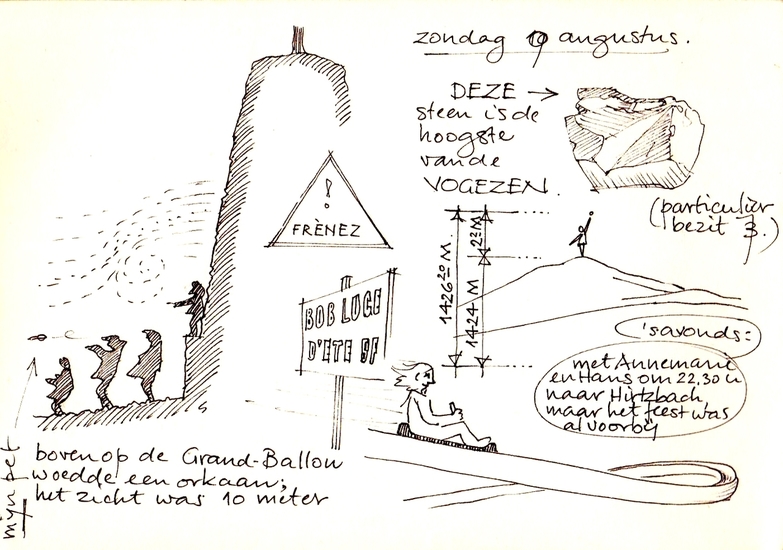 zondag 19 augustus.
DEZE →
steen is de
hoogste
van de
VOGEZEN.
(particulier
bezit
!
FRÈNEZ
BOB LUGE
D'ETE 9F
1426²⁰ M.
2²⁰ M
1424 M
'savonds:
met Annemarie
en Hans om 22.30 u
naar Hirtzbach,
maar het feest was
al voorbij
mijn pet
boven op de Grand-Ballon
woedde een orkaan;
het zicht was 10 meter